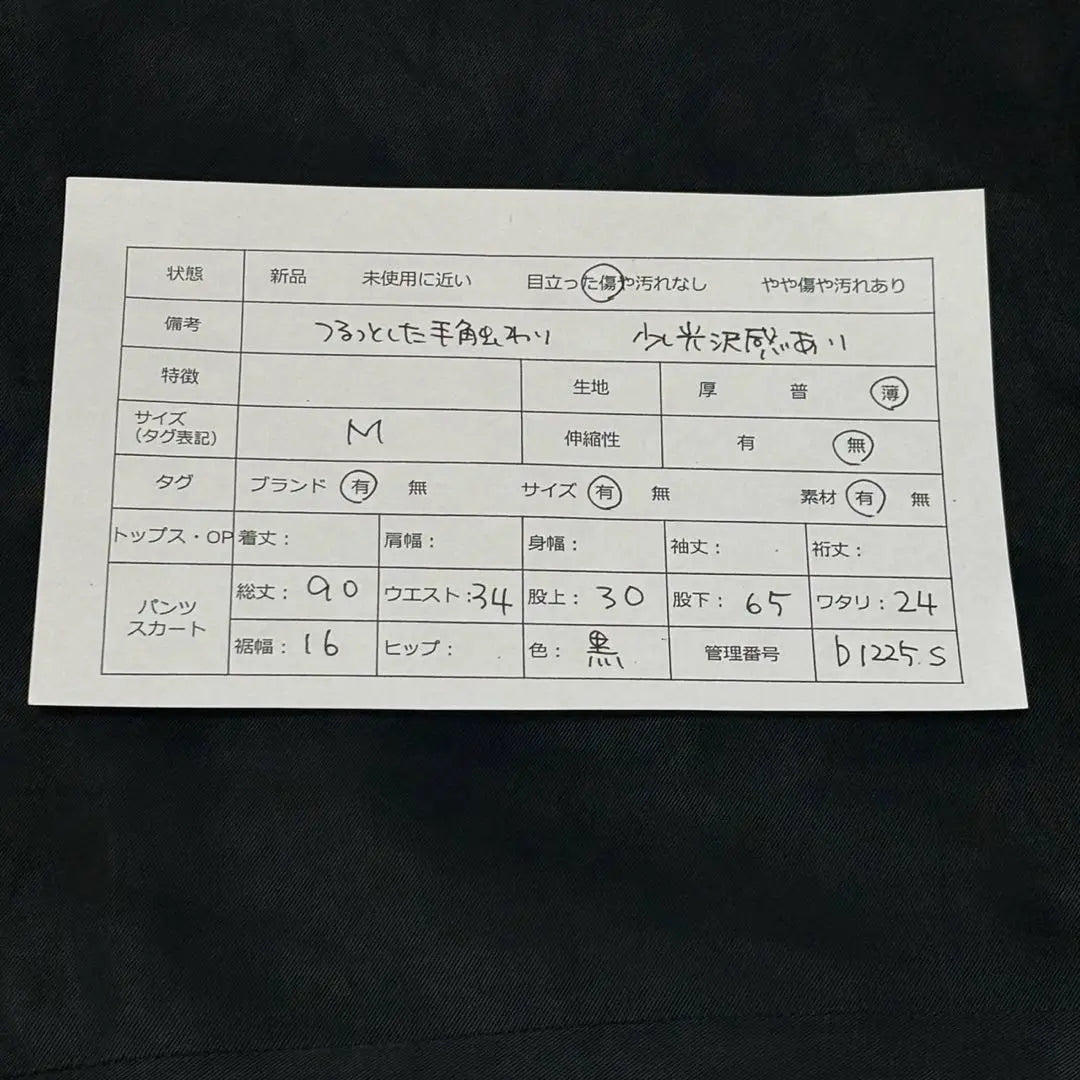 状態 新品 未使用に近い 目立った傷や汚れなし やや傷や汚れあり
備考 つるっとした手触わり 少し光沢感あり
特徴 生地 厚 普 薄
サイズ
(タグ表記) M 伸縮性 有 無
タグ ブランド 有 無 サイズ 有 無 素材 有 無
トップス・OP 着丈: 肩幅: 身幅: 袖丈: 裄丈:
パンツ
スカート
総丈: 90 ウエスト:34 股上: 30 股下: 65 ワタリ: 24
裾幅: 16 ヒップ: 色: 黒 管理番号 b1225.S